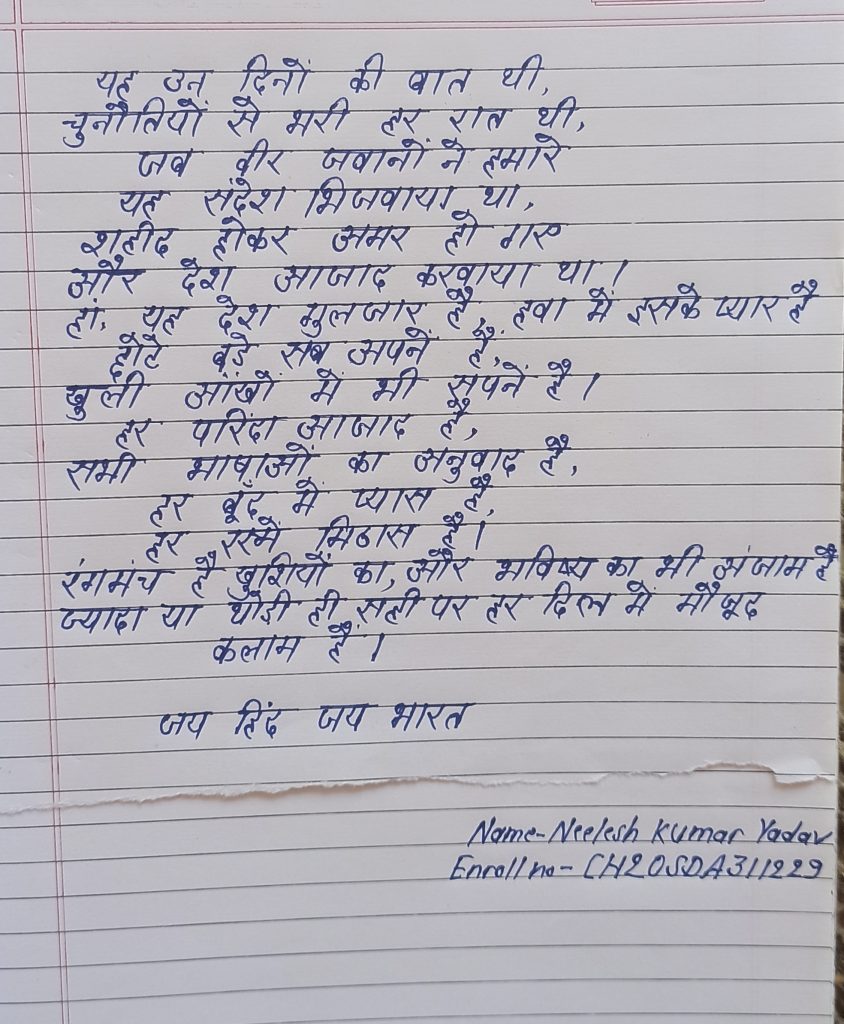 यह उन दिनों की बात थी,
चुनौतियों से भरी हर रात थी,
जब वीर जवानों ने हमारे
यह संदेश भिजवाया था,
शहीद होकर अमर हो गए
और देश आजाद करवाया था।
हां, यह देश गुलजार है, हवा में इसके प्यार है
छोटे बड़े सब अपनें हैं,
खुली आंखों में भी सपनें है।
हर परिंदा आजाद है,
सभी भाषाओं का अनुवाद है,
हर बूँद में प्यास है,
हर रस्में मिठास है।
रंगमंच है खुशियों का, और भविष्य का भी अंजाम है
ज्यादा या थोड़ी ही सही पर हर दिल में मौजूद
कलाम है।
जय हिंद जय भारत
Name-Neelesh Kumar Yadav
Enroll no- CH20SDA311229